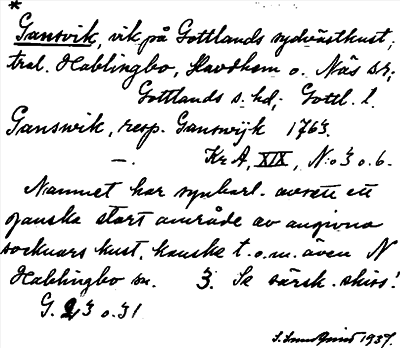 *
Gansvik, vik på Gottlands sydvästkust;
tral. Hablingbo, Havdhem o. Näs sr;
Gottlands s. hd; Gottl. l.
Ganswik, resp. Ganswijk 1763.
—. Kr A, XIX, N:o 3 o. 6.
Namnet har synbarl. avsett ett
ganska stort område av angivna
socknars kust, kanske t.o.m. även N
Hablingbo sn. 3. Se särsk. skiss!
G. 23 o. 31
1937.